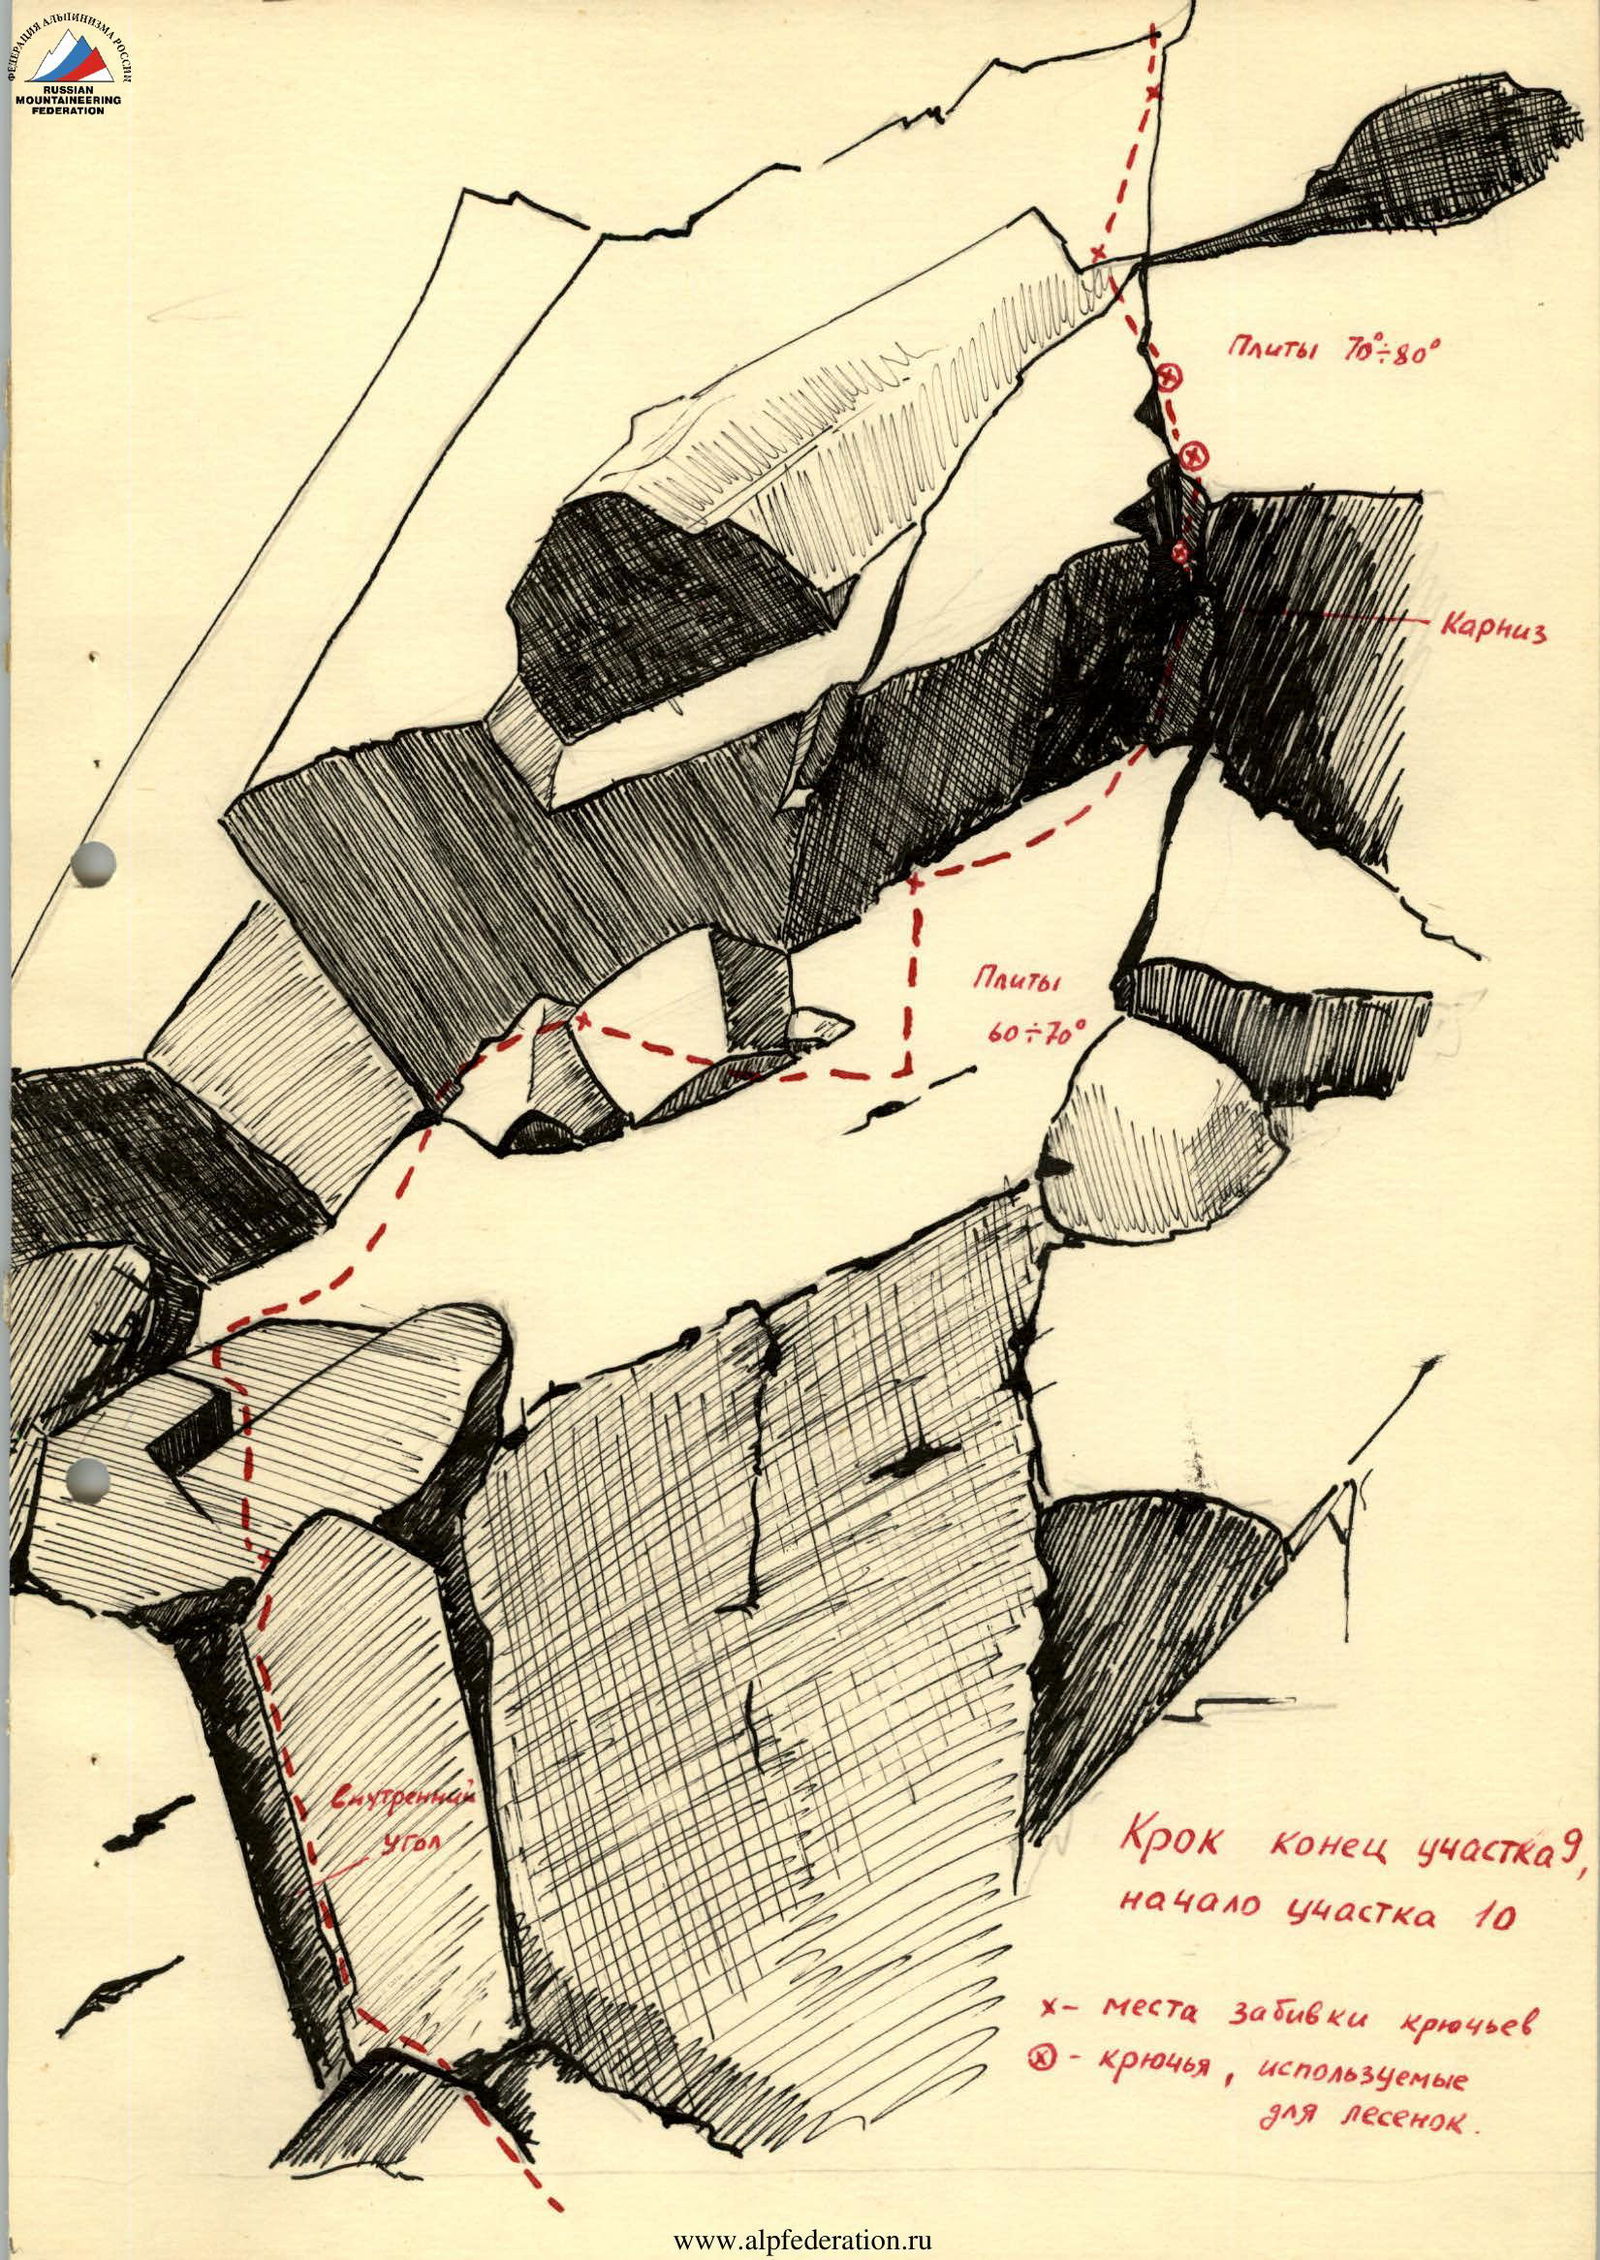 ФЕДЕРАЦИЯ АЛЬПИНИЗМА РОССИИ
RUSSIAN
MOUNTAINEERING
FEDERATION
Плиты 70°÷80°
Карниз
Плиты
60÷70°
Внутренний
угол
Крок конец участка 9,
начало участка 10
х- места забивки крючьев
ⓧ - крючья, используемые
для лесенок.
www.alpfederation.ru